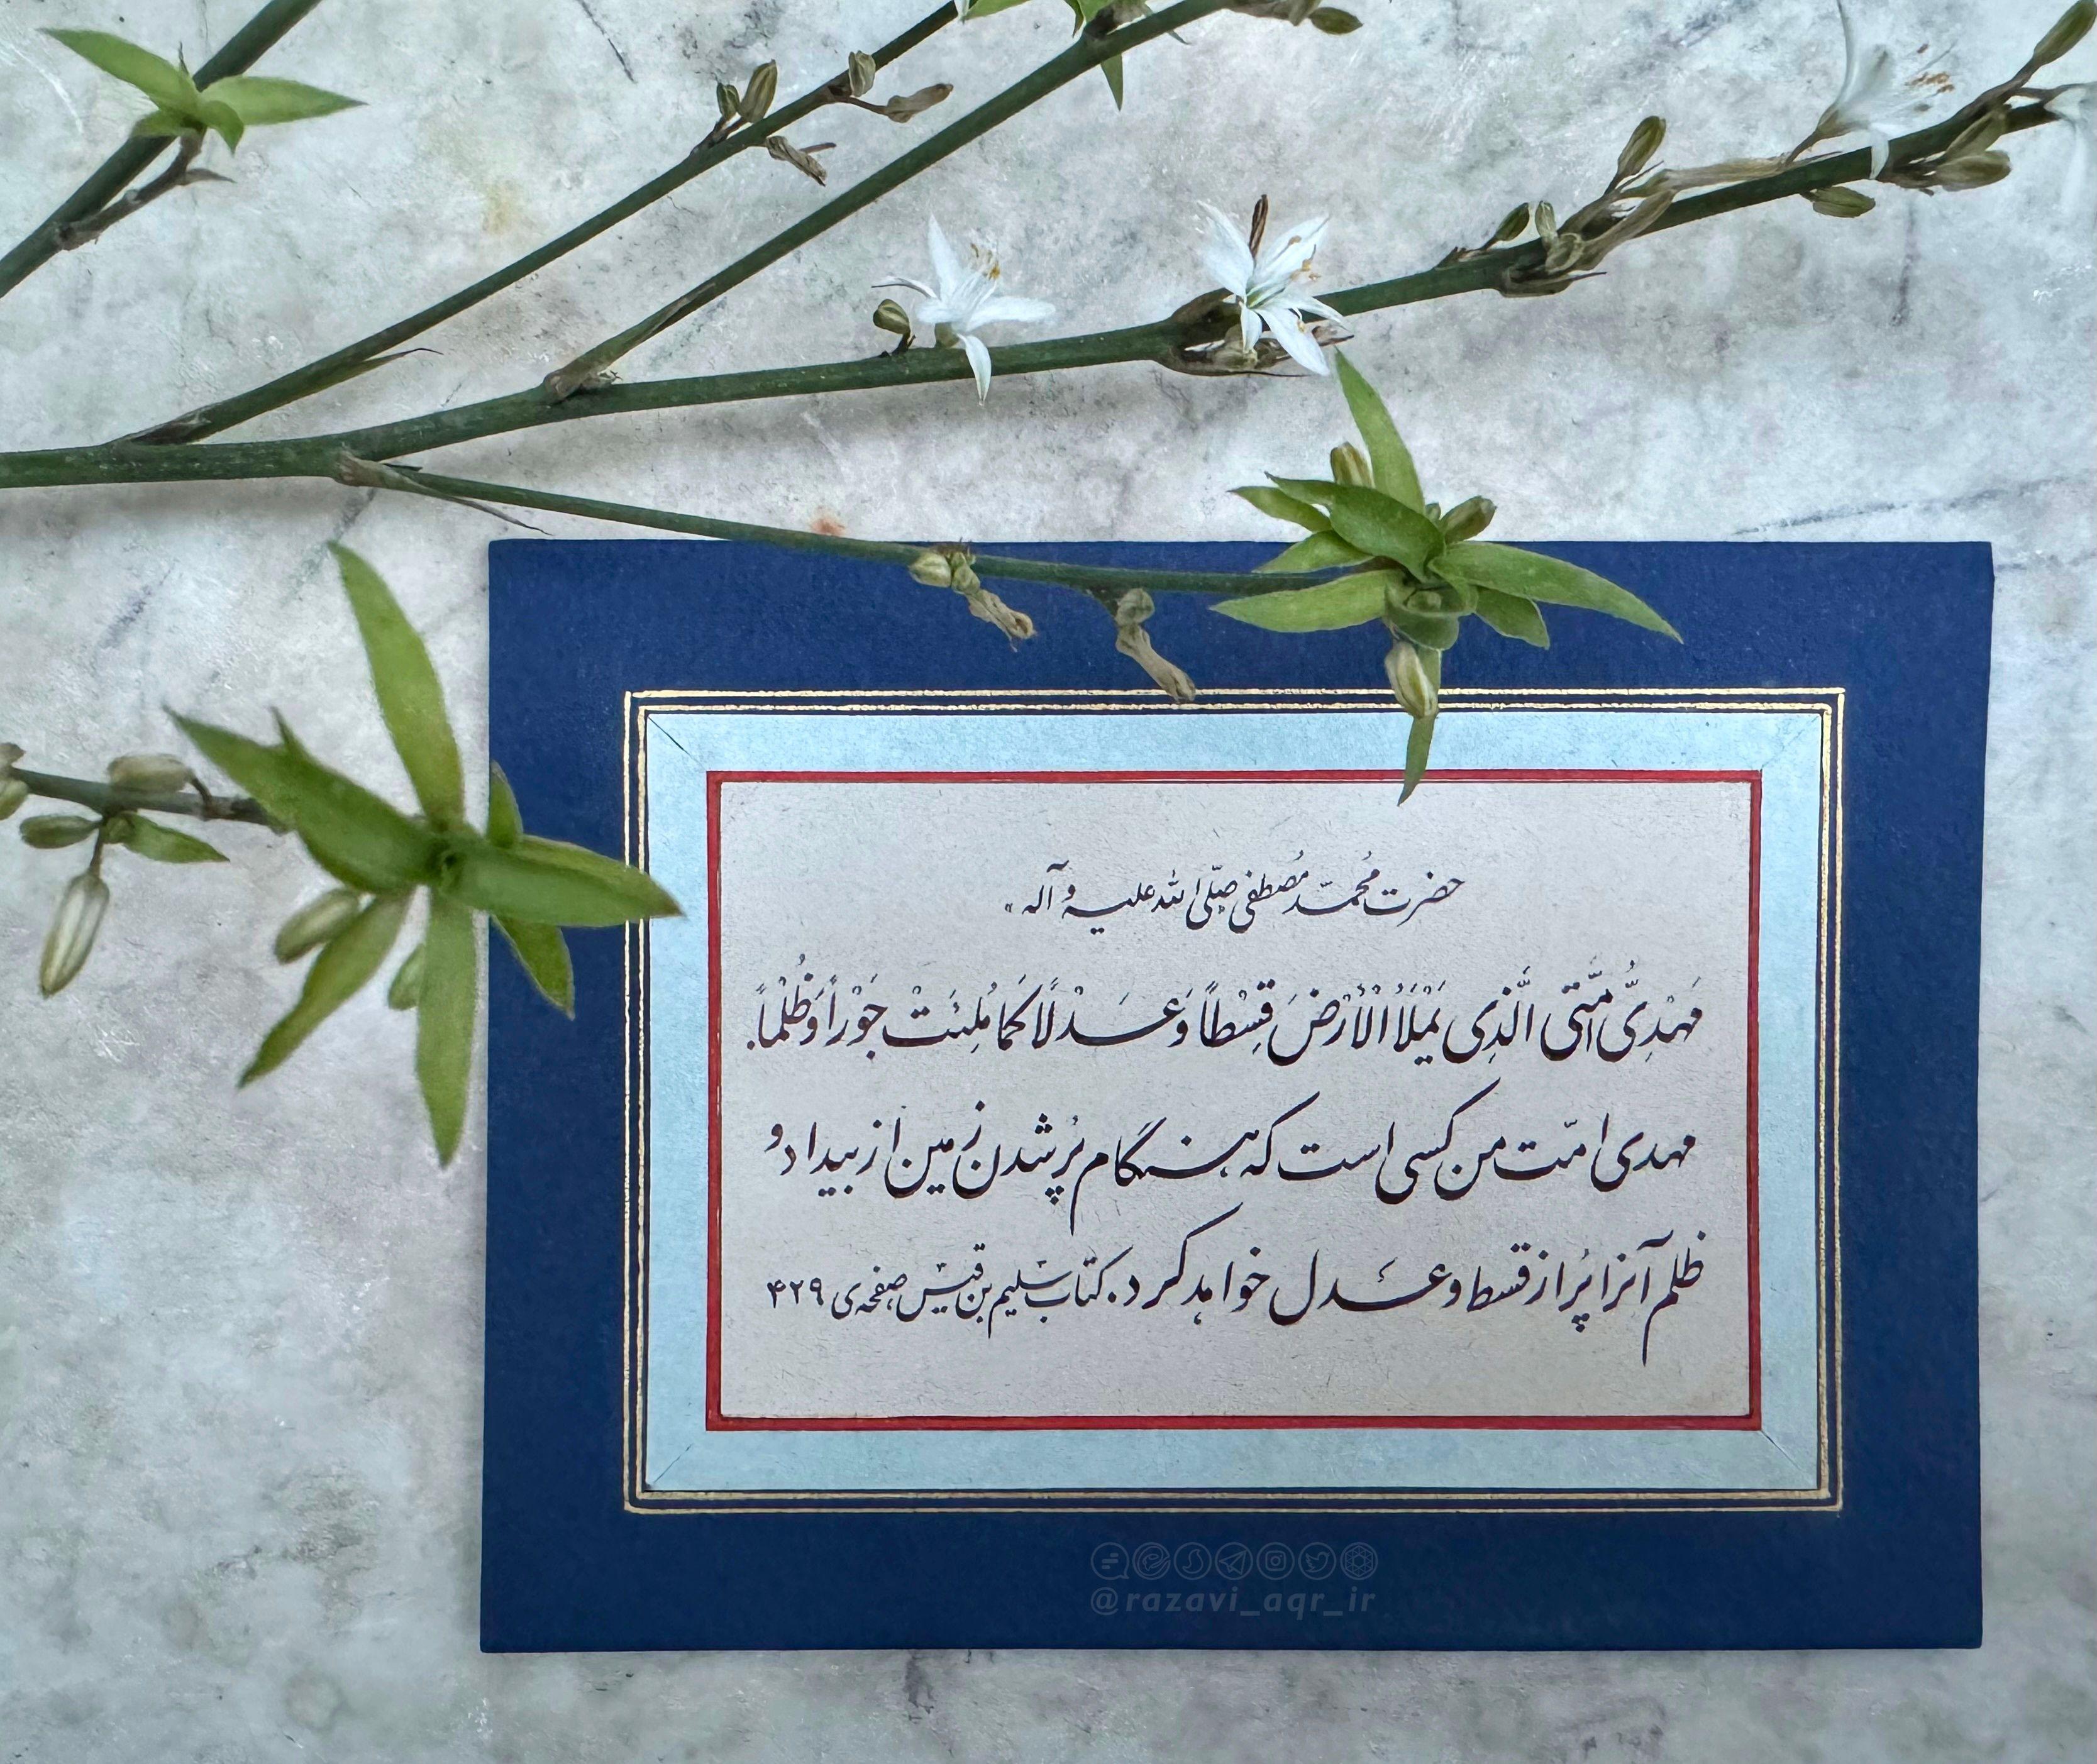 حضرت مُحمّد مُصطفی صلّی الله علیه و آله
مَهْدِیُّ اُمَّتی الَّذِی یَمْلَاُ الْاَرْضَ قِسْطاً وَ عَدْلًا کَما مُلِئَتْ جَوْراً وَ ظُلْماً.
مهدی امّت من کسی است که هنگام پُر شدن زمین از بیداد و
ظلم آنرا پُر از قسط و عَدل خواهد کرد. کتاب سلیم بن قیس صفحه‌ی ۴۲۹
@razavi_aqr_ir